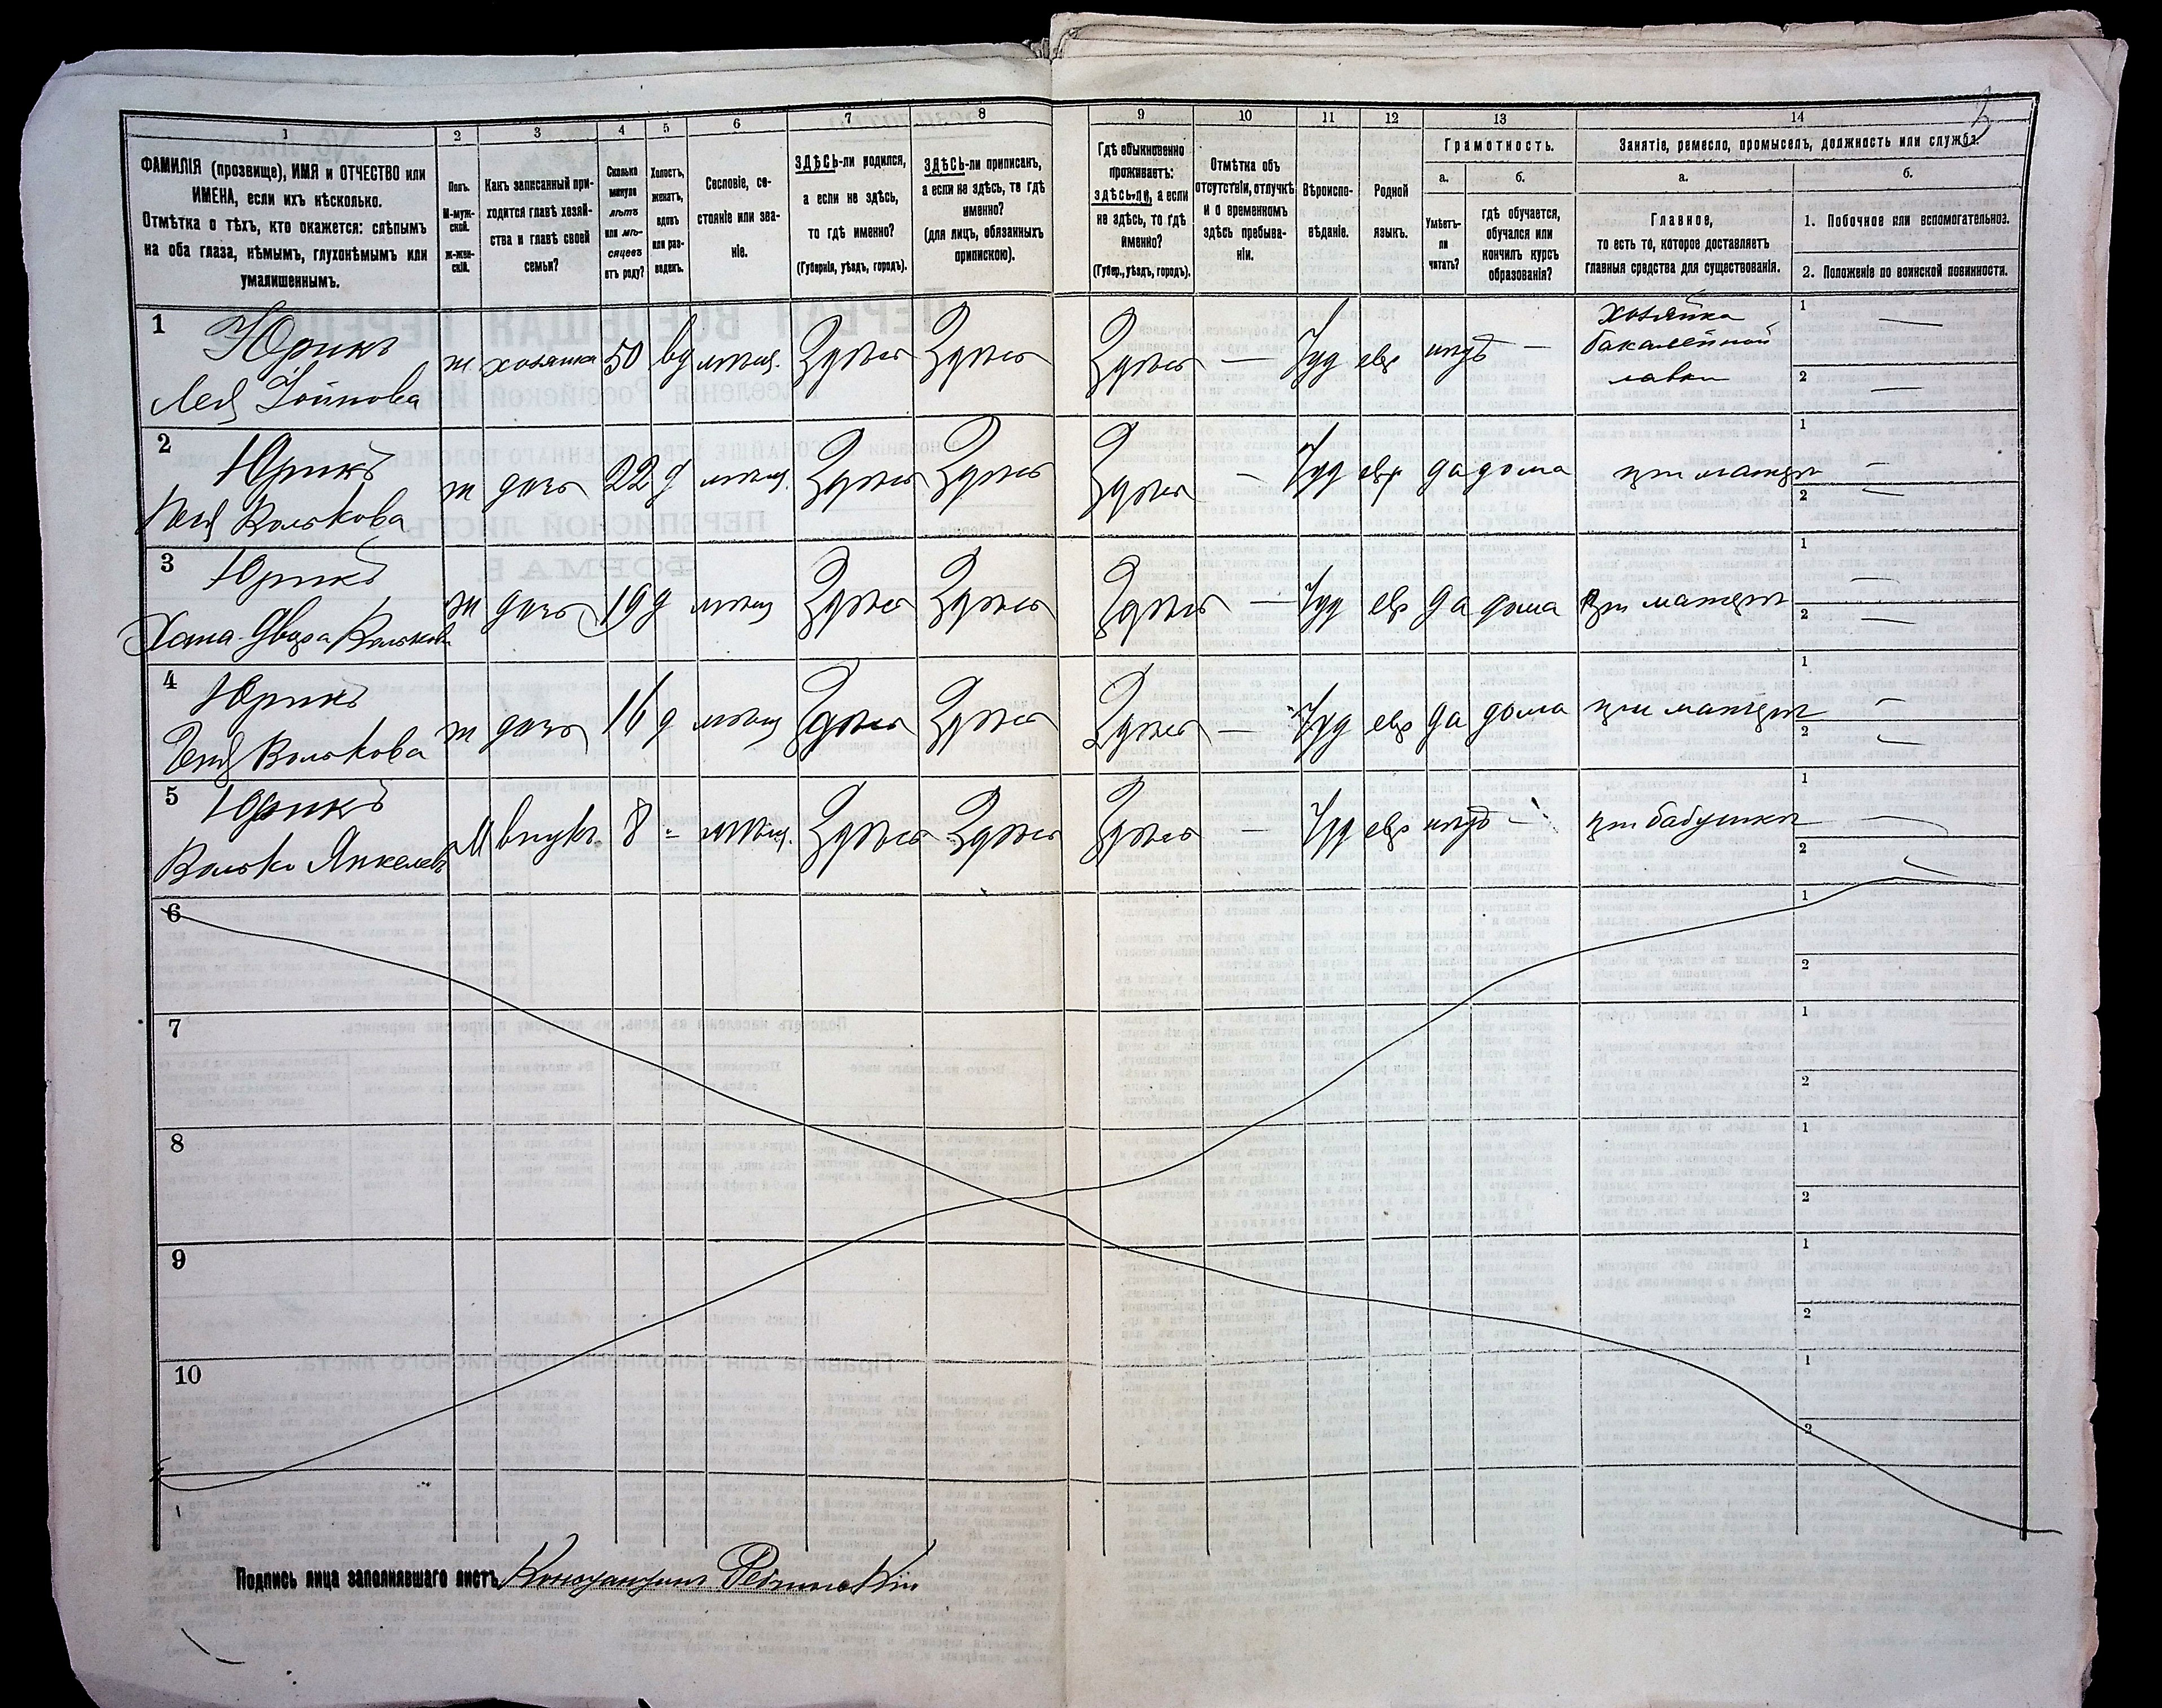 1 2 3 4 5 6 7 8 9 10 11 12 13 14
ФАМИЛІЯ (прозвище), ИМЯ и ОТЧЕСТВО или
ИМЕНА, если ихъ нѣсколько.
Отмѣтка о тѣхъ, кто окажется: слѣпымъ
на оба глаза, нѣмымъ, глухонѣмымъ или
умалишеннымъ.
Полъ.
М-муж-
ской.
Ж-жен-
скій.
Какъ записанный при-
ходится главѣ хозяй-
ства и главѣ своей
семьи?
Сколько
минуло
лѣтъ
или мѣ-
сяцевъ
отъ роду?
Холостъ,
женатъ,
вдовъ
или раз-
веденъ.
Сословіе, со-
стояніе или зва-
ніе.
ЗДѢСЬ-ли родился,
а если не здѣсь,
то гдѣ именно?
(Губернія, уѣздъ, городъ).
ЗДѢСЬ-ли приписанъ,
а если не здѣсь, то гдѣ
именно?
(для лицъ, обязанныхъ
припискою).
Гдѣ обыкновенно
проживаетъ:
здѣсь-ли, а если
не здѣсь, то гдѣ
именно?
(Губер., уѣздъ, городъ).
Отмѣтка объ
отсутствіи, отлучкѣ
и о временномъ
здѣсь пребыва-
ніи.
Вѣроиспо-
вѣданіе.
Родной
языкъ.
Грамотность.
а.
Умѣетъ-
ли
читать?
б.
гдѣ обучается,
обучался или
кончилъ курсъ
образованія?
Занятіе, ремесло, промыселъ, должность или служба.
а.
Главное,
то есть то, которое доставляетъ
главныя средства для существованія.
б.
1. Побочное или вспомогательное.
2. Положеніе по воинской повинности.
1 Юрикъ
ж хозяйка 50 вд мѣщ. Здѣсь Здѣсь Здѣсь — Іуд евр нѣтъ —
хозяйка
бакалейной
лавки
1 —
2 —
2 Юрикъ
Волькова
ж дочь 22 д мѣщ. Здѣсь Здѣсь Здѣсь — Іуд евр да дома при матери
1 —
2 —
3 Юрикъ
Хана-Двера Волькова
ж дочь 19 д мѣщ Здѣсь Здѣсь Здѣсь — Іуд евр да дома при матери
1 —
2 —
4 Юрикъ
Волькова
ж дочь 16 д мѣщ Здѣсь Здѣсь Здѣсь — Іуд евр да дома при матери
1 —
2 —
5 Юрикъ
Волько Янкелевъ
М внукъ 8 - мѣщ. Здѣсь Здѣсь Здѣсь — Іуд евр нѣтъ — при бабушкѣ
1 —
2
6
1
2
7
1
2
8
1
2
9
1
2
10
1
2
Подпись лица заполнявшаго листъ Константинъ